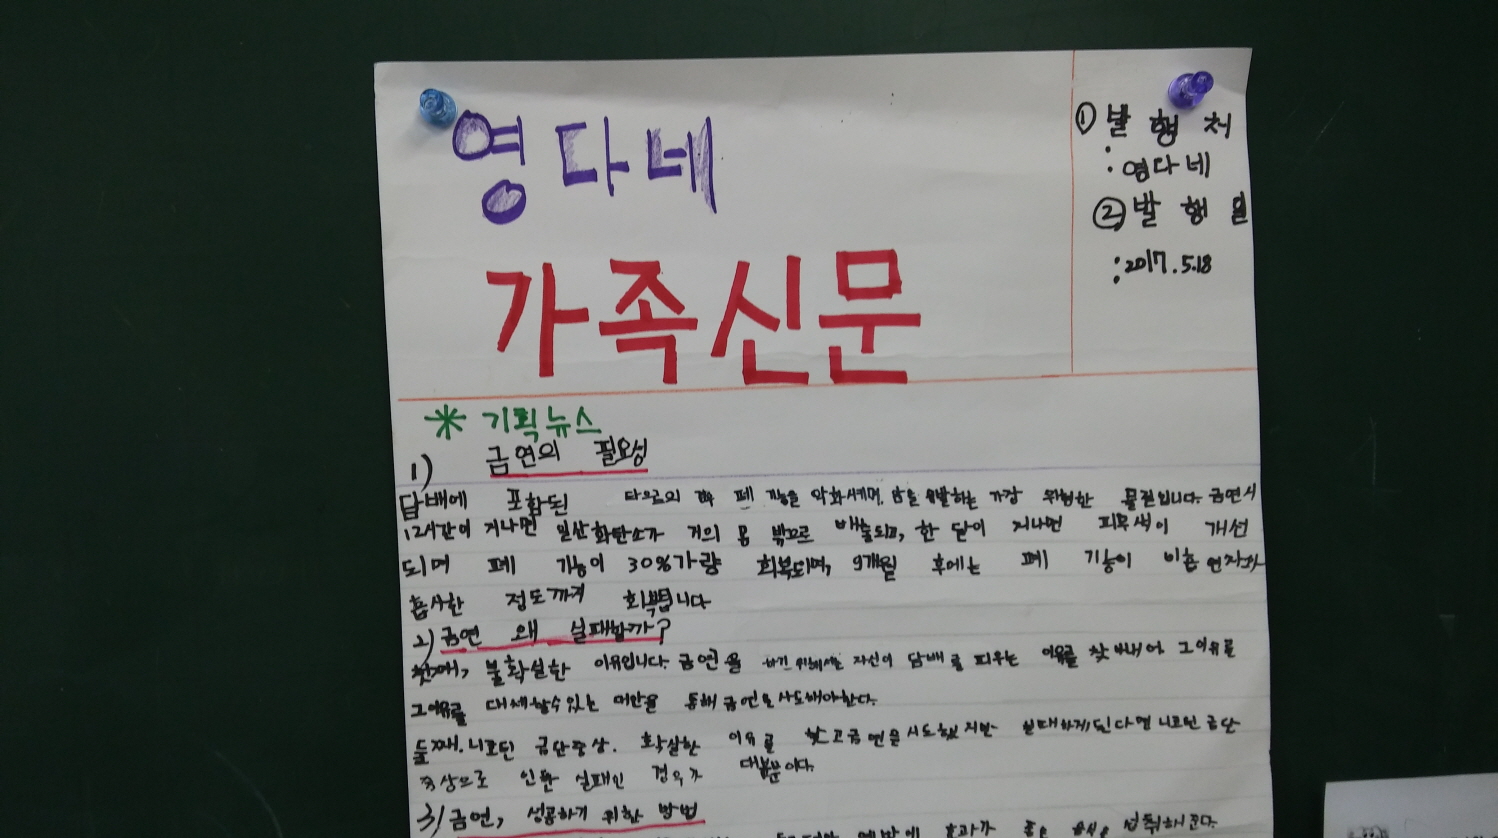 영다네
가족신문
① 발행처
: 영다네
② 발행일
: 2017.5.18
* 기획뉴스
1) 금연의 필요성
담배에 포함된 폐 기능을 악화시키며, 암을 유발하는 가장 위험한 물질입니다. 금연시
12시간이 지나면 일산화탄소가 거의 몸 밖으로 배출되고, 한 달이 지나면 피부색이 개선
되며 폐 기능이 30%가량 회복되며, 9개월 후에는 폐 기능이 비흡연자와
흡사한 정도까지 회복됩니다
2) 금연 왜 실패할까?
첫째, 불확실한 이유입니다. 금연을 하기 위해서는 자신이 담배를 피우는 이유를 찾아내어 그 이유를
그 이유를 대체할 수 있는 대안을 통해 금연을 시도해야한다.
둘째, 니코틴 금단증상. 확실한 이유를 찾고 금연을 시도했지만 실패하게된다면 니코틴 금단
증상으로 인한 실패인 경우가 대부분이다.
3) 금연, 성공하기 위한 방법
효과가 좋은 음식을 섭취해준다.